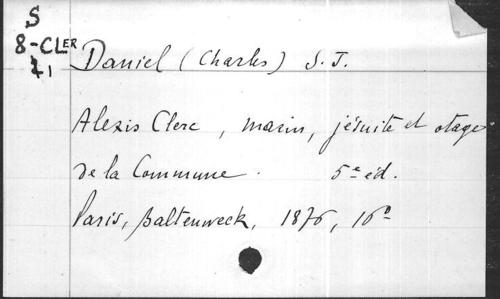 S
8-CLER
Daniel (Charles) S.J.
Alexis Clerc, marin, jésuite et otage
de la Commune. 5e éd.
Paris, Baltenweck, 1876, 16o